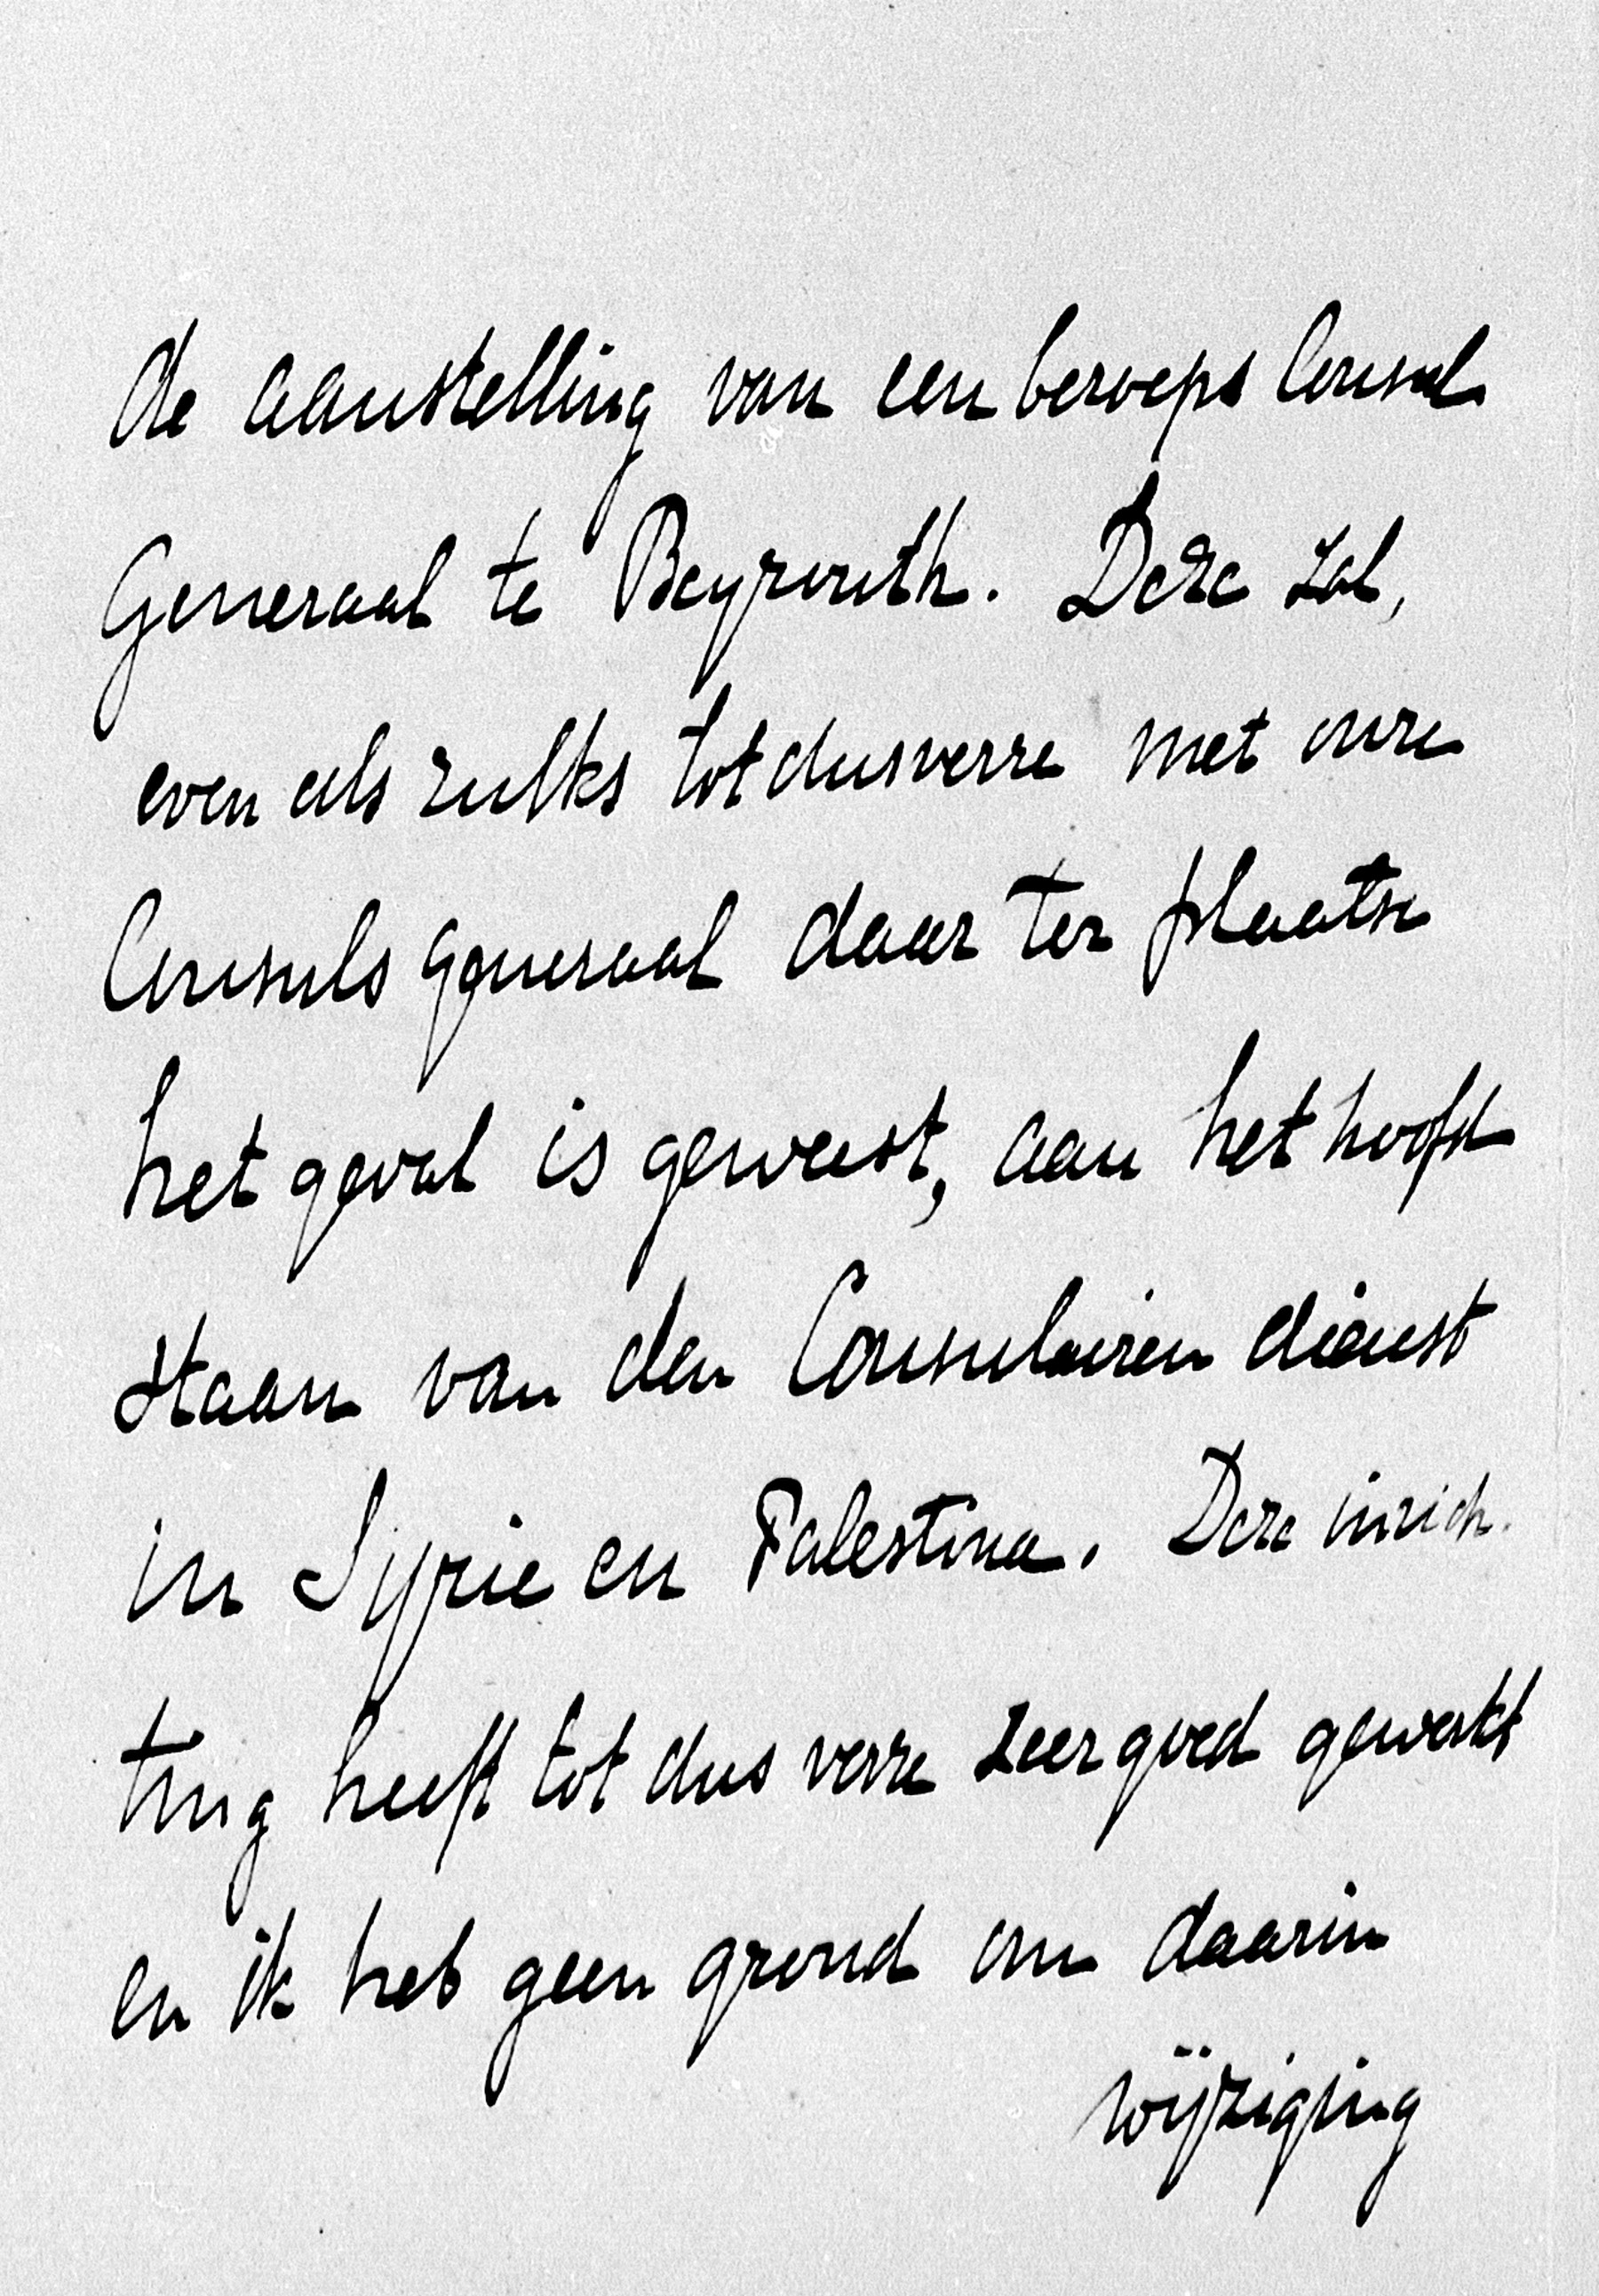 de aanstelling van een beroeps Consul
Generaal te Beyrouth. Deze zal,
even als zulks tot dusverre met onze
Consuls generaal daar ter plaatse
het geval is geweest, aan het hoofd
staan van den Consulairen dienst
in Syrie en Palestina. Deze inrich-
ting heeft tot dus verre zeer goed gewerkt
en ik heb geen grond om daarin
wijziging